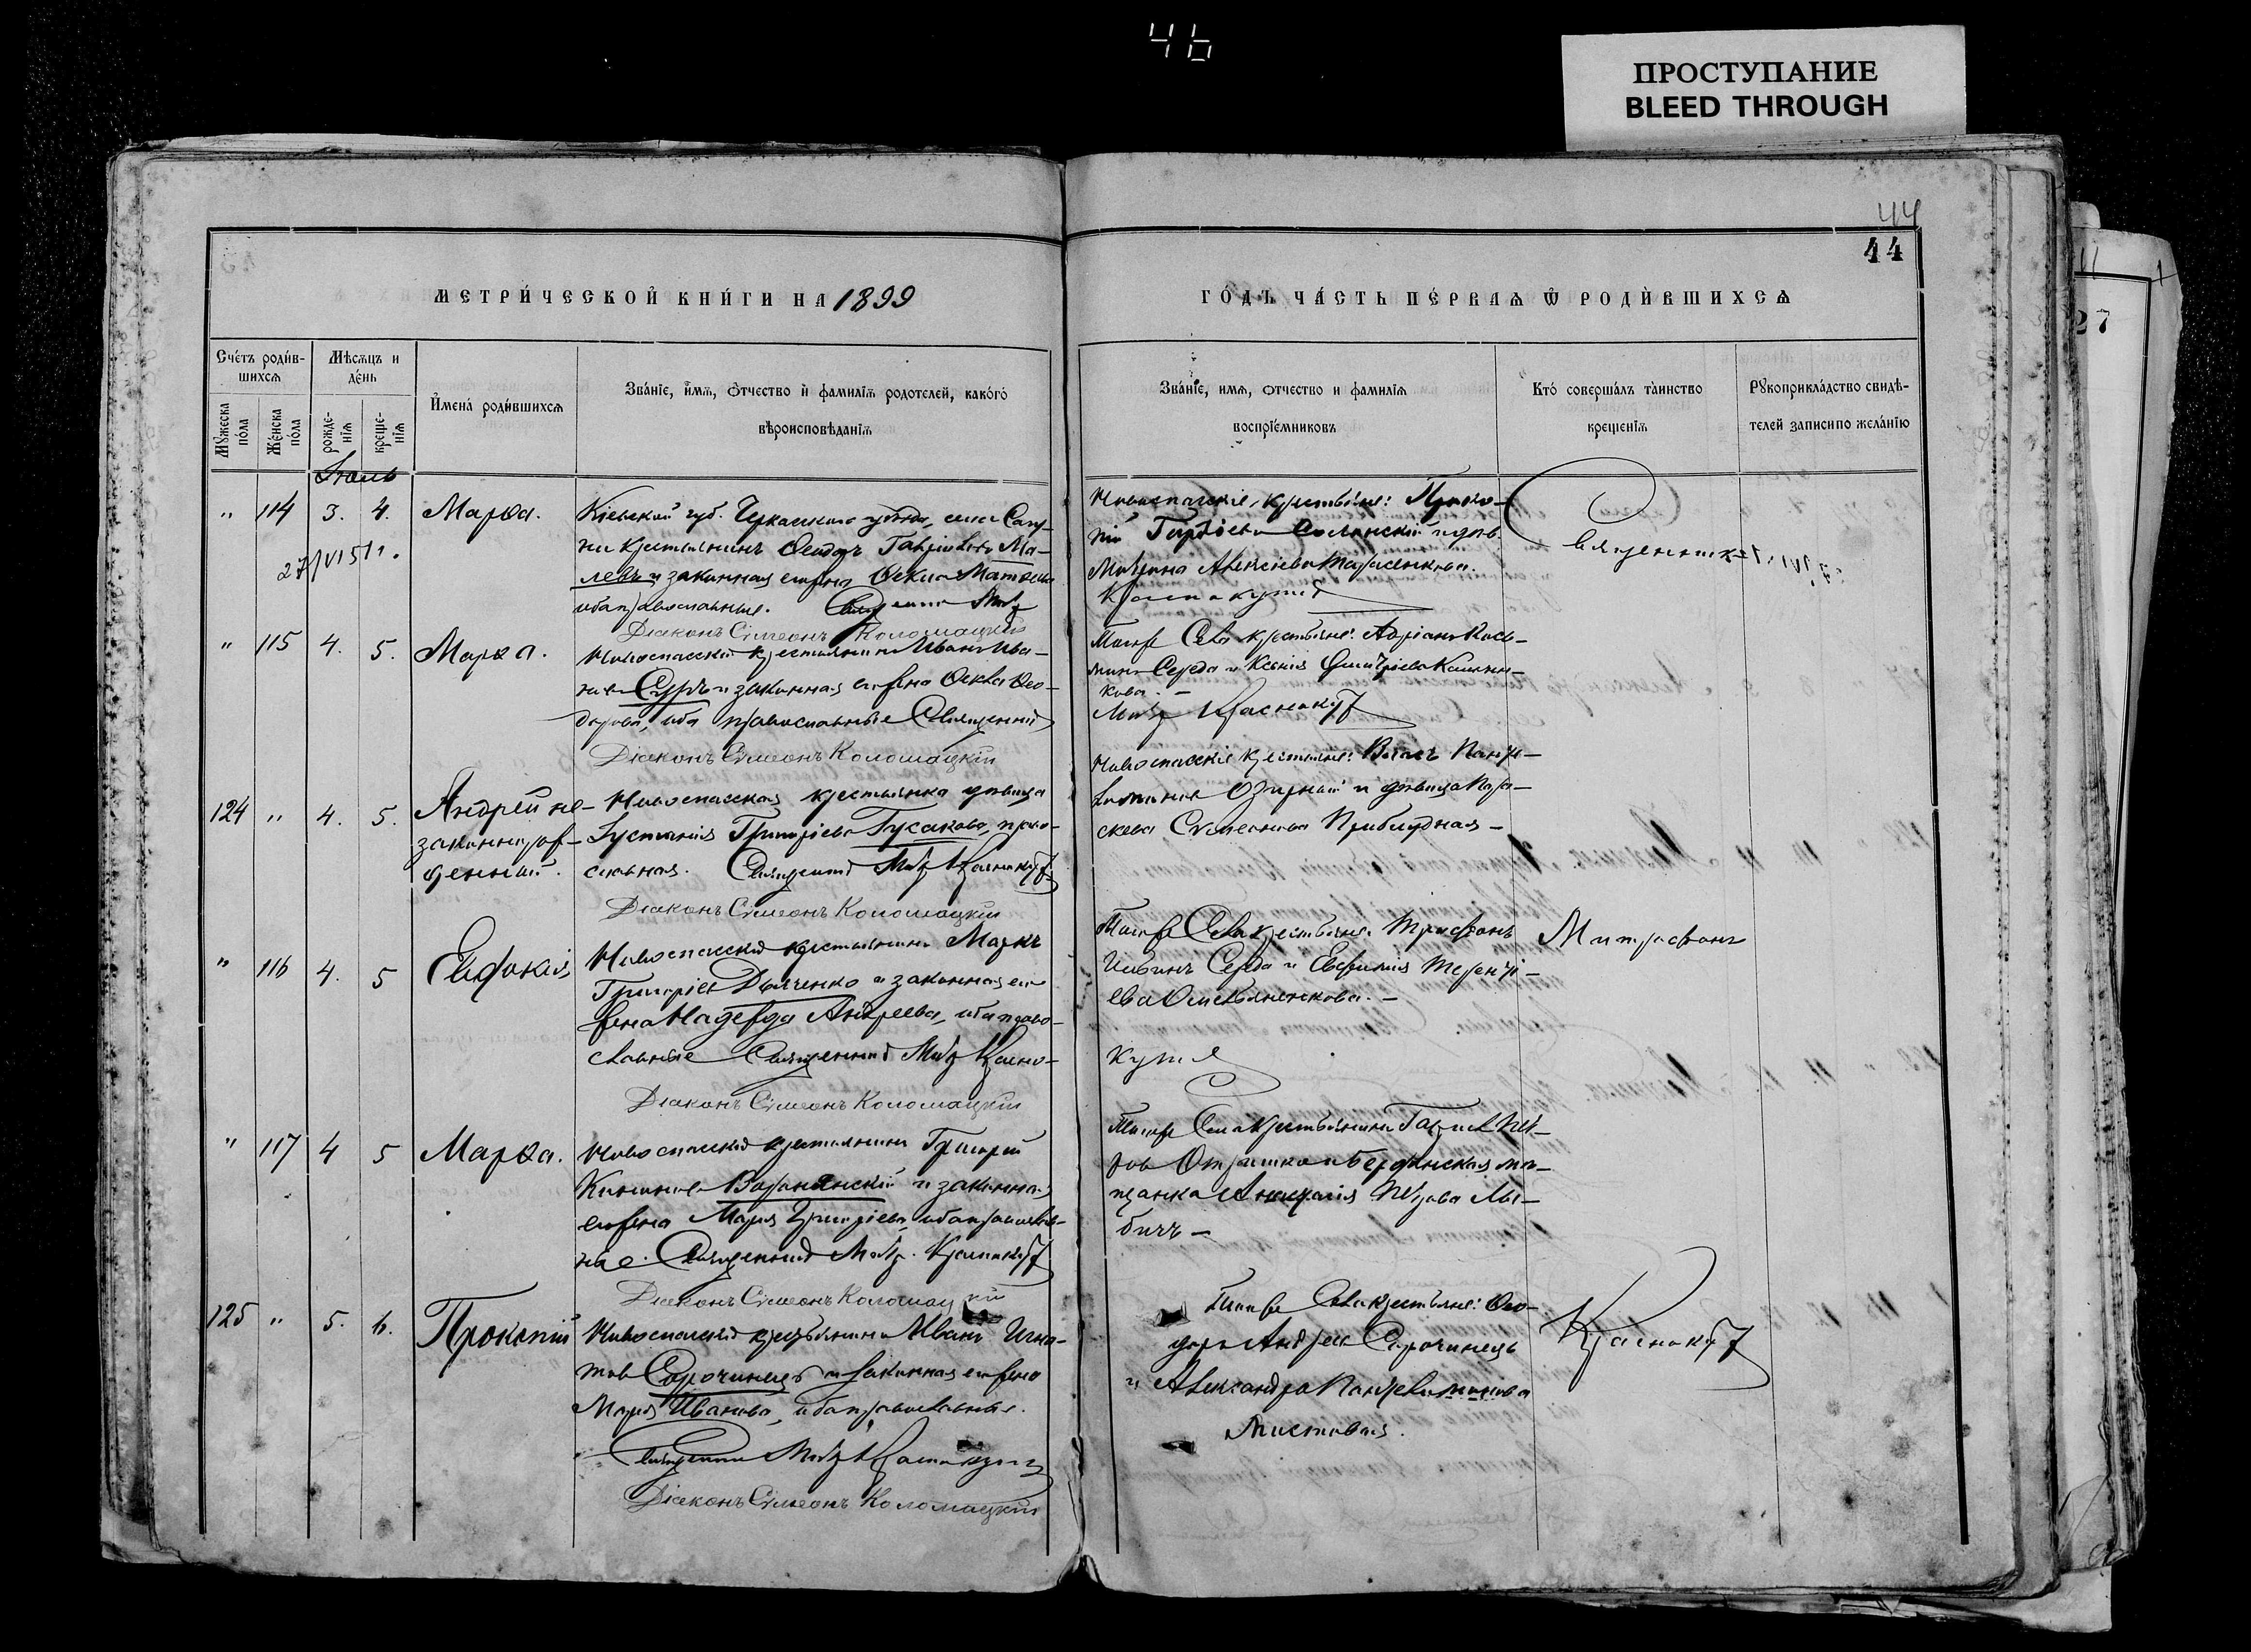 46
ПРОСТУПАНИЕ
BLEED THROUGH
44
44
27
МЕТРИ́ЧЕСКОЙ КНИ́ГИ НА 1899
ГО́ДЪ ЧА́СТЬ ПЕ́РВАѦ Ѿ РОДИ́ВШИХСѦ
Сче́тъ роди́в-
шихсѧ
Мꙋ́жеска по́ла
Же́нска по́ла
Мѣ́сѧцъ и
де́нь
рожде-
нїѧ
креще-
нїѧ
И҆мена́ роди́вшихсѧ
Зва́нїе, и҆́мѧ, ѻ҆́тчество и҆ фами́лїѧ родителей, како́гѡ
вѣроисповѣ́данїѧ
Зва́нїе, имѧ, ѻтчество и фамилїѧ
воспрїе́мниковъ
Кто̀ соверша́лъ та́инство
крещенїѧ
Рꙋкоприкла́дство свидѣ-
телей записи по жела́нїю
Іюль
" 114 3. 4. Марѳа.
Кіевской губ. Черкасскаго уѣзда, села
крестьянинъ Ѳеодоръ Гавріиловъ Ма-
левъ и законная его жена Матѳеева
оба православные. Священникъ Митр
Діаконъ Сѵмеонъ Коломацкій
Новоспаскіе крестьяне: Проко-
пій и дѣв.
Алексіева Тарасенкова.
Краснокутъ
Священникъ
" 115 4. 5. Марѳа.
Новоспасскій крестьянинъ Иванъ Ива-
новъ и законная его жена Ѳекла Ѳео-
дорова, оба православные Священникъ
Діаконъ Сѵмеонъ Коломацкій
Того же Села крестьяне: Адріанъ Кось-
минъ Середа и Ксенія Димитріева Калини-
кова. –
Митр Краснокутъ
124 " 4. 5. Андрей не-
законнорож-
денный.
Новоспасская крестьянка дѣвица
Іустинія Григоріева Гусакова, право-
славная. Священникъ Митр Краснокутъ
Діаконъ Сѵмеонъ Коломацкій
Новоспасскіе крестьяне: Власъ Панте-
леимоновъ Озирный и дѣвица Пара-
скева Сѵмеонова Приблудная –
" 116 4. 5 Евдокія
Новоспасскій крестьянинъ Маркъ
Григоріевъ Дьяченко и законная его
жена Надежда Андреева, оба право-
славные Священникъ Митр Красно-
Діаконъ Сѵмеонъ Коломацкій
Того же Села крестьяне: Трифонъ
Середа и Евфимія Теренті-
ева Омельяненкова. –
кутъ
Митрофанъ
" 117 4 5 Марѳа.
Новоспасскій крестьянинъ Григорій
и законная
его жена Марія Григоріева, оба православ-
ные. Священникъ Митр. Краснокутъ
Діаконъ Сѵмеонъ Коломацкій
Того же Села крестьянинъ Гавріилъ Пет-
ровъ и Бердянская мѣ-
щанка Петрова Ли-
бичъ –
125 " 5. 6. Прокопій
Новоспасскій крестьянинъ Иванъ Игна-
товъ Сорочинецъ и законная его жена
Марія Иванова, оба православные.
Священникъ Митр Краснокутъ
Діаконъ Сѵмеонъ Коломацкій
Того же Села крестьяне: Ѳео-
доръ Андреевъ Сорочинецъ
и Александра Пантелеимонова
Листовая.
Краснокутъ